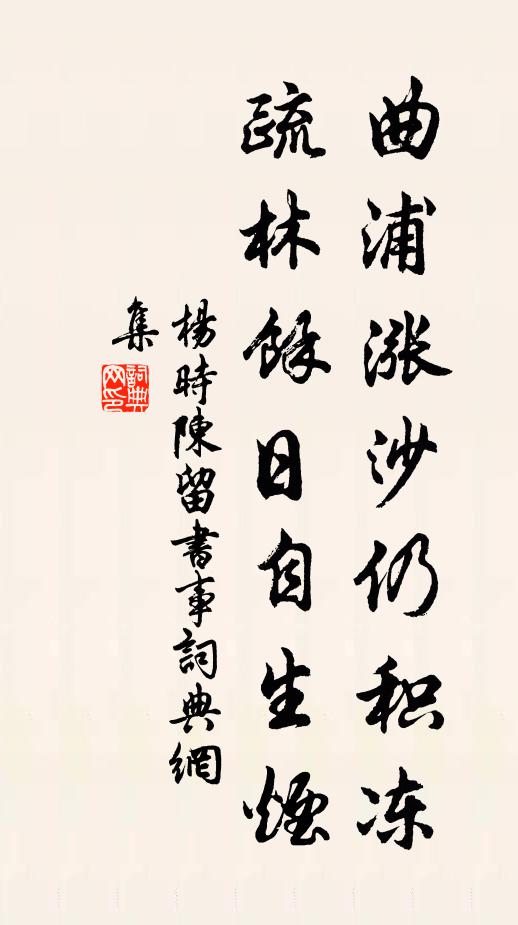 曲浦漲沙仍积冻
疏林餘日自生煙
楊時陳留書事詞典網
集
詞典
网印